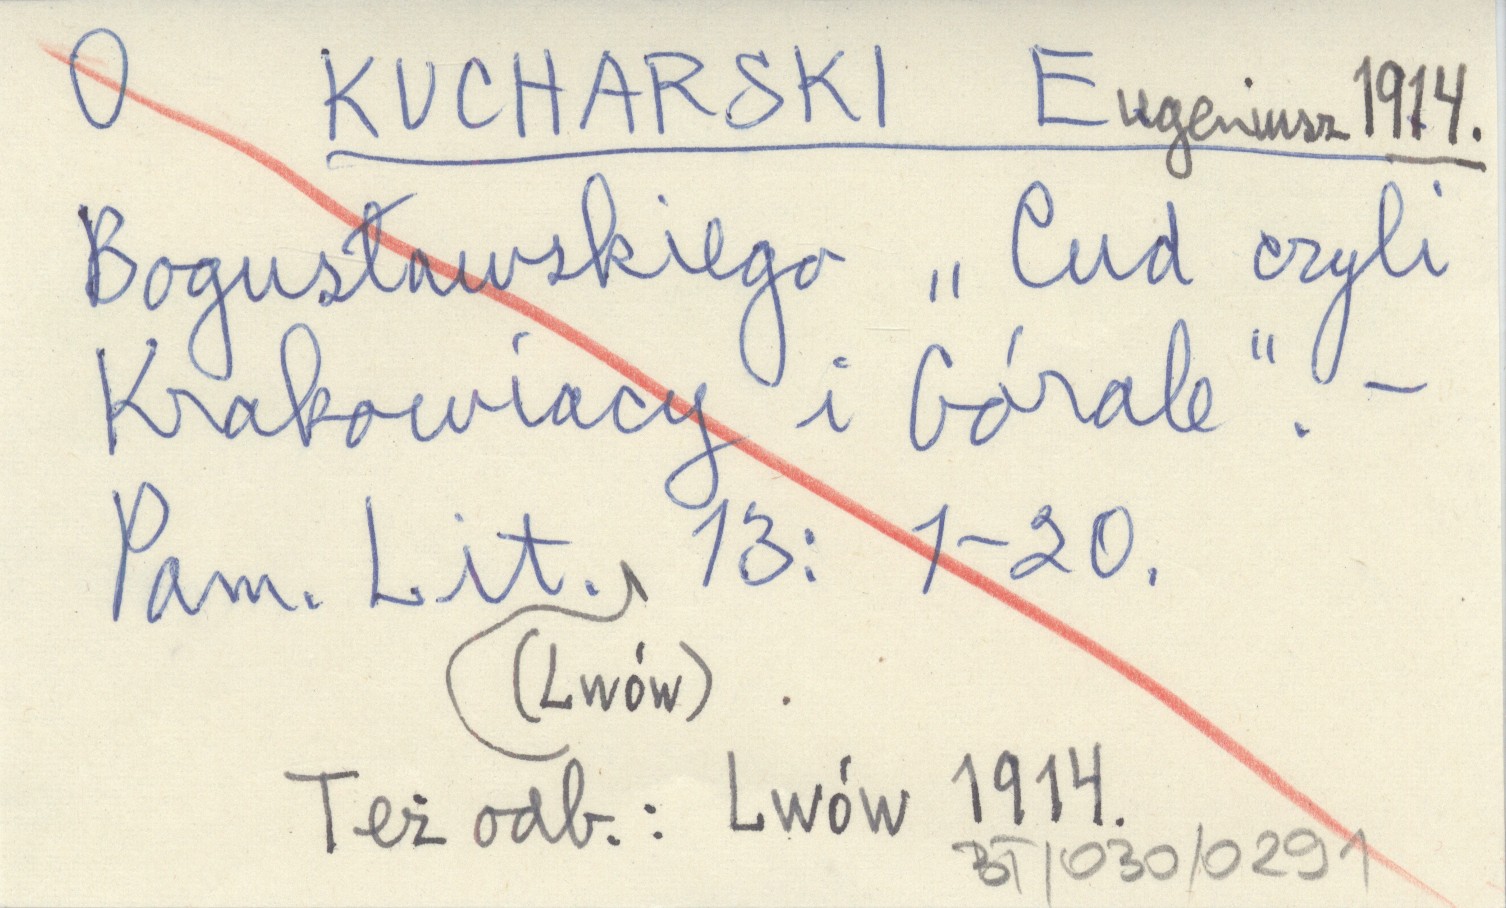 O KUCHARSKI Eugeniusz 1914.
Bogusławskiego „Cud czyli
Krakowiacy i Górale". –
Pam. Lit. 13: 1-20.
(Lwów)
Też odb.: Lwów 1914.
BT/030/0291